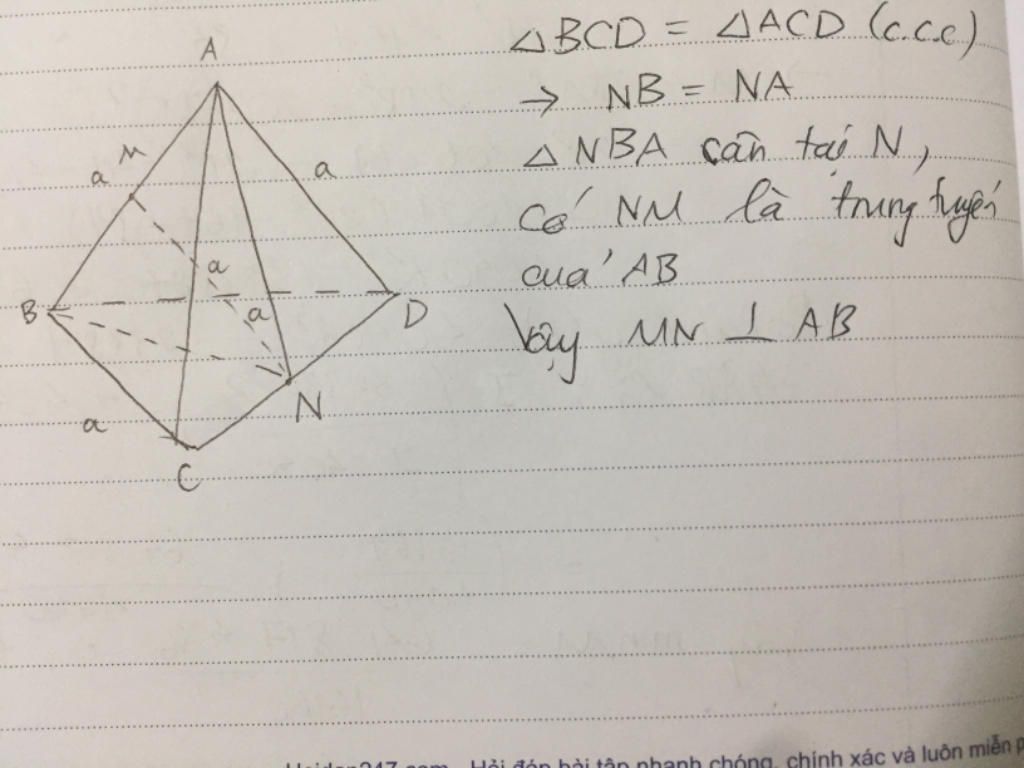 A
M
a
a
a
a
B
D
N
a
C
△BCD = △ACD (c.c.c)
→ NB = NA
△NBA cân tại N,
có NM là trung tuyến
của AB
Vậy MN ⊥ AB
Hoidap247.com - Hỏi đáp bài tập nhanh chóng, chính xác và luôn miễn p